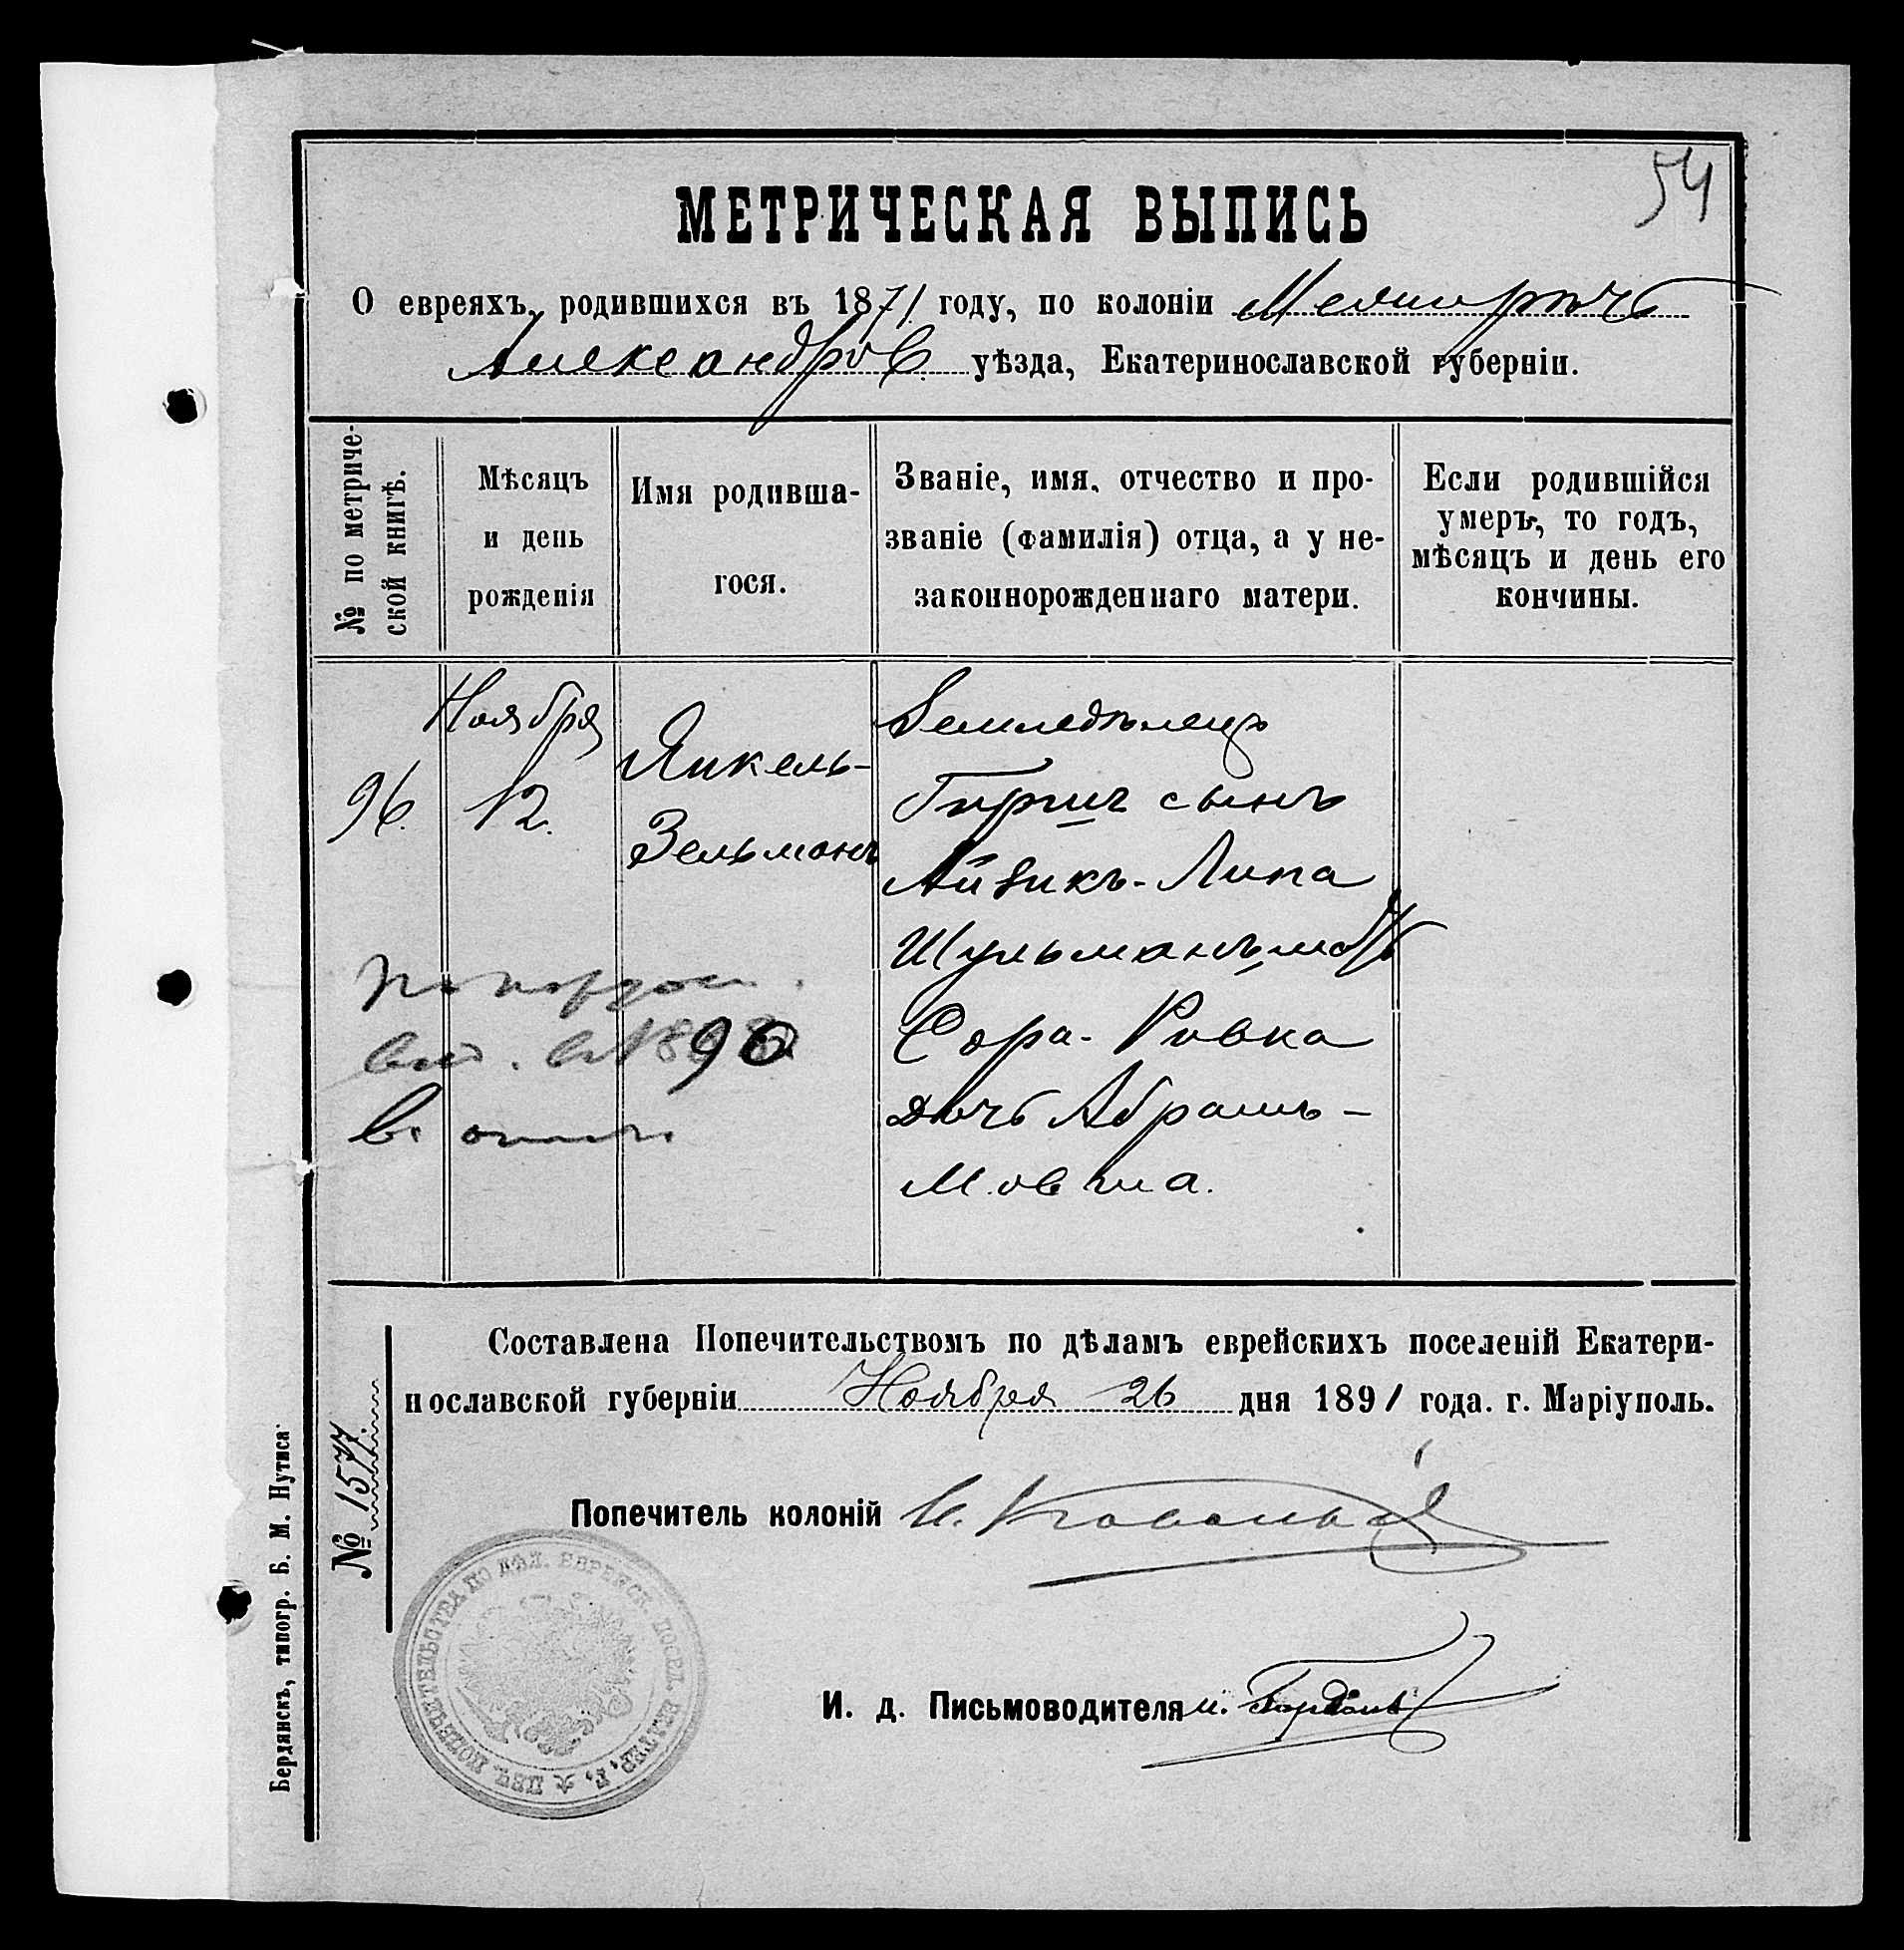 54
МЕТРИЧЕСКАЯ ВЫПИСЬ
О евреяхъ, родившихся въ 1871 году, по колоніи Межирѣчь
Александров. уѣзда, Екатеринославской губерніи.
№ по метриче-
ской книгѣ.
Мѣсяцъ
и день
рожденія
Имя родивша-
гося.
Званіе, имя, отчество и про-
званіе (фамилія) отца, а у не-
законнорожденнаго матери.
Если родившійся
умеръ, то годъ,
мѣсяцъ и день его
кончины.
96.
Ноября
12.
Янкель-
Зельманъ
Земледѣлецъ
Гиршъ сынъ
Айзикъ-Липа
Шульманъ, мать
Сора-Ривка
дочь Абрамъ-
Мовша.
90
Составлена Попечительствомъ по дѣламъ еврейскихъ поселеній Екатери-
нославской губерніи Ноября 26 дня 1891 года. г. Маріуполь.
№ 1577.
Попечитель колоній И.
И. д. Письмоводителя И. Гордонъ
ПЕЧ. ПОПЕЧИТЕЛЬСТВА ПО ДѢЛ. ЕВРЕЙСК. ПОСЕЛ. ЕКАТЕР. Г.
Бердянскъ, типогр. Б. М. Нутиса.